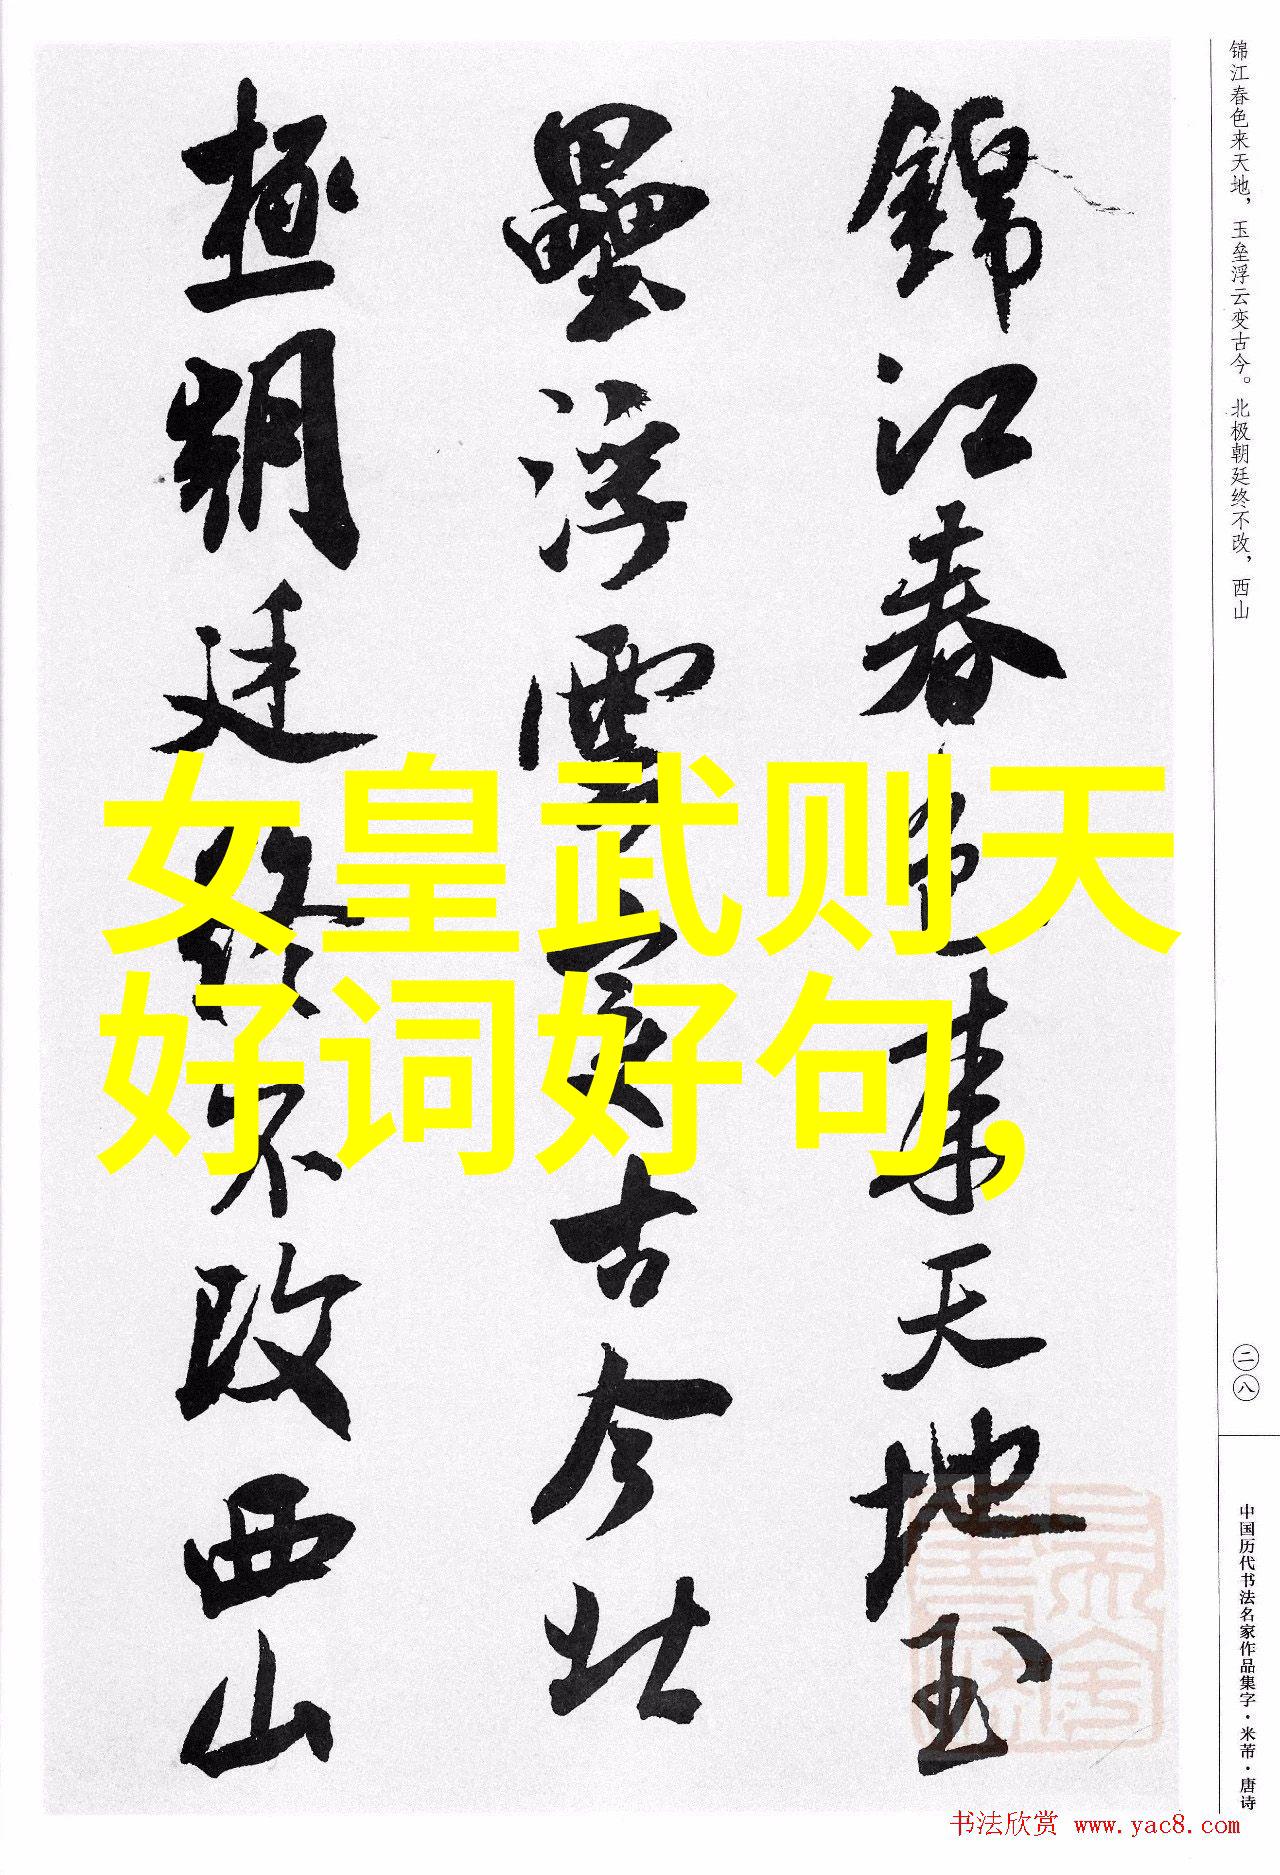 锦江春色来天地，玉垒浮云变古今。北极朝廷终不改，西山
錦江春色来天地玉
壘浮雲變古今北
極朝廷終不改西山
女皇武则天
好词好句，
二八
中国历代书法名家作品集字·米芾·唐诗
书法欣赏 www.yac8.com